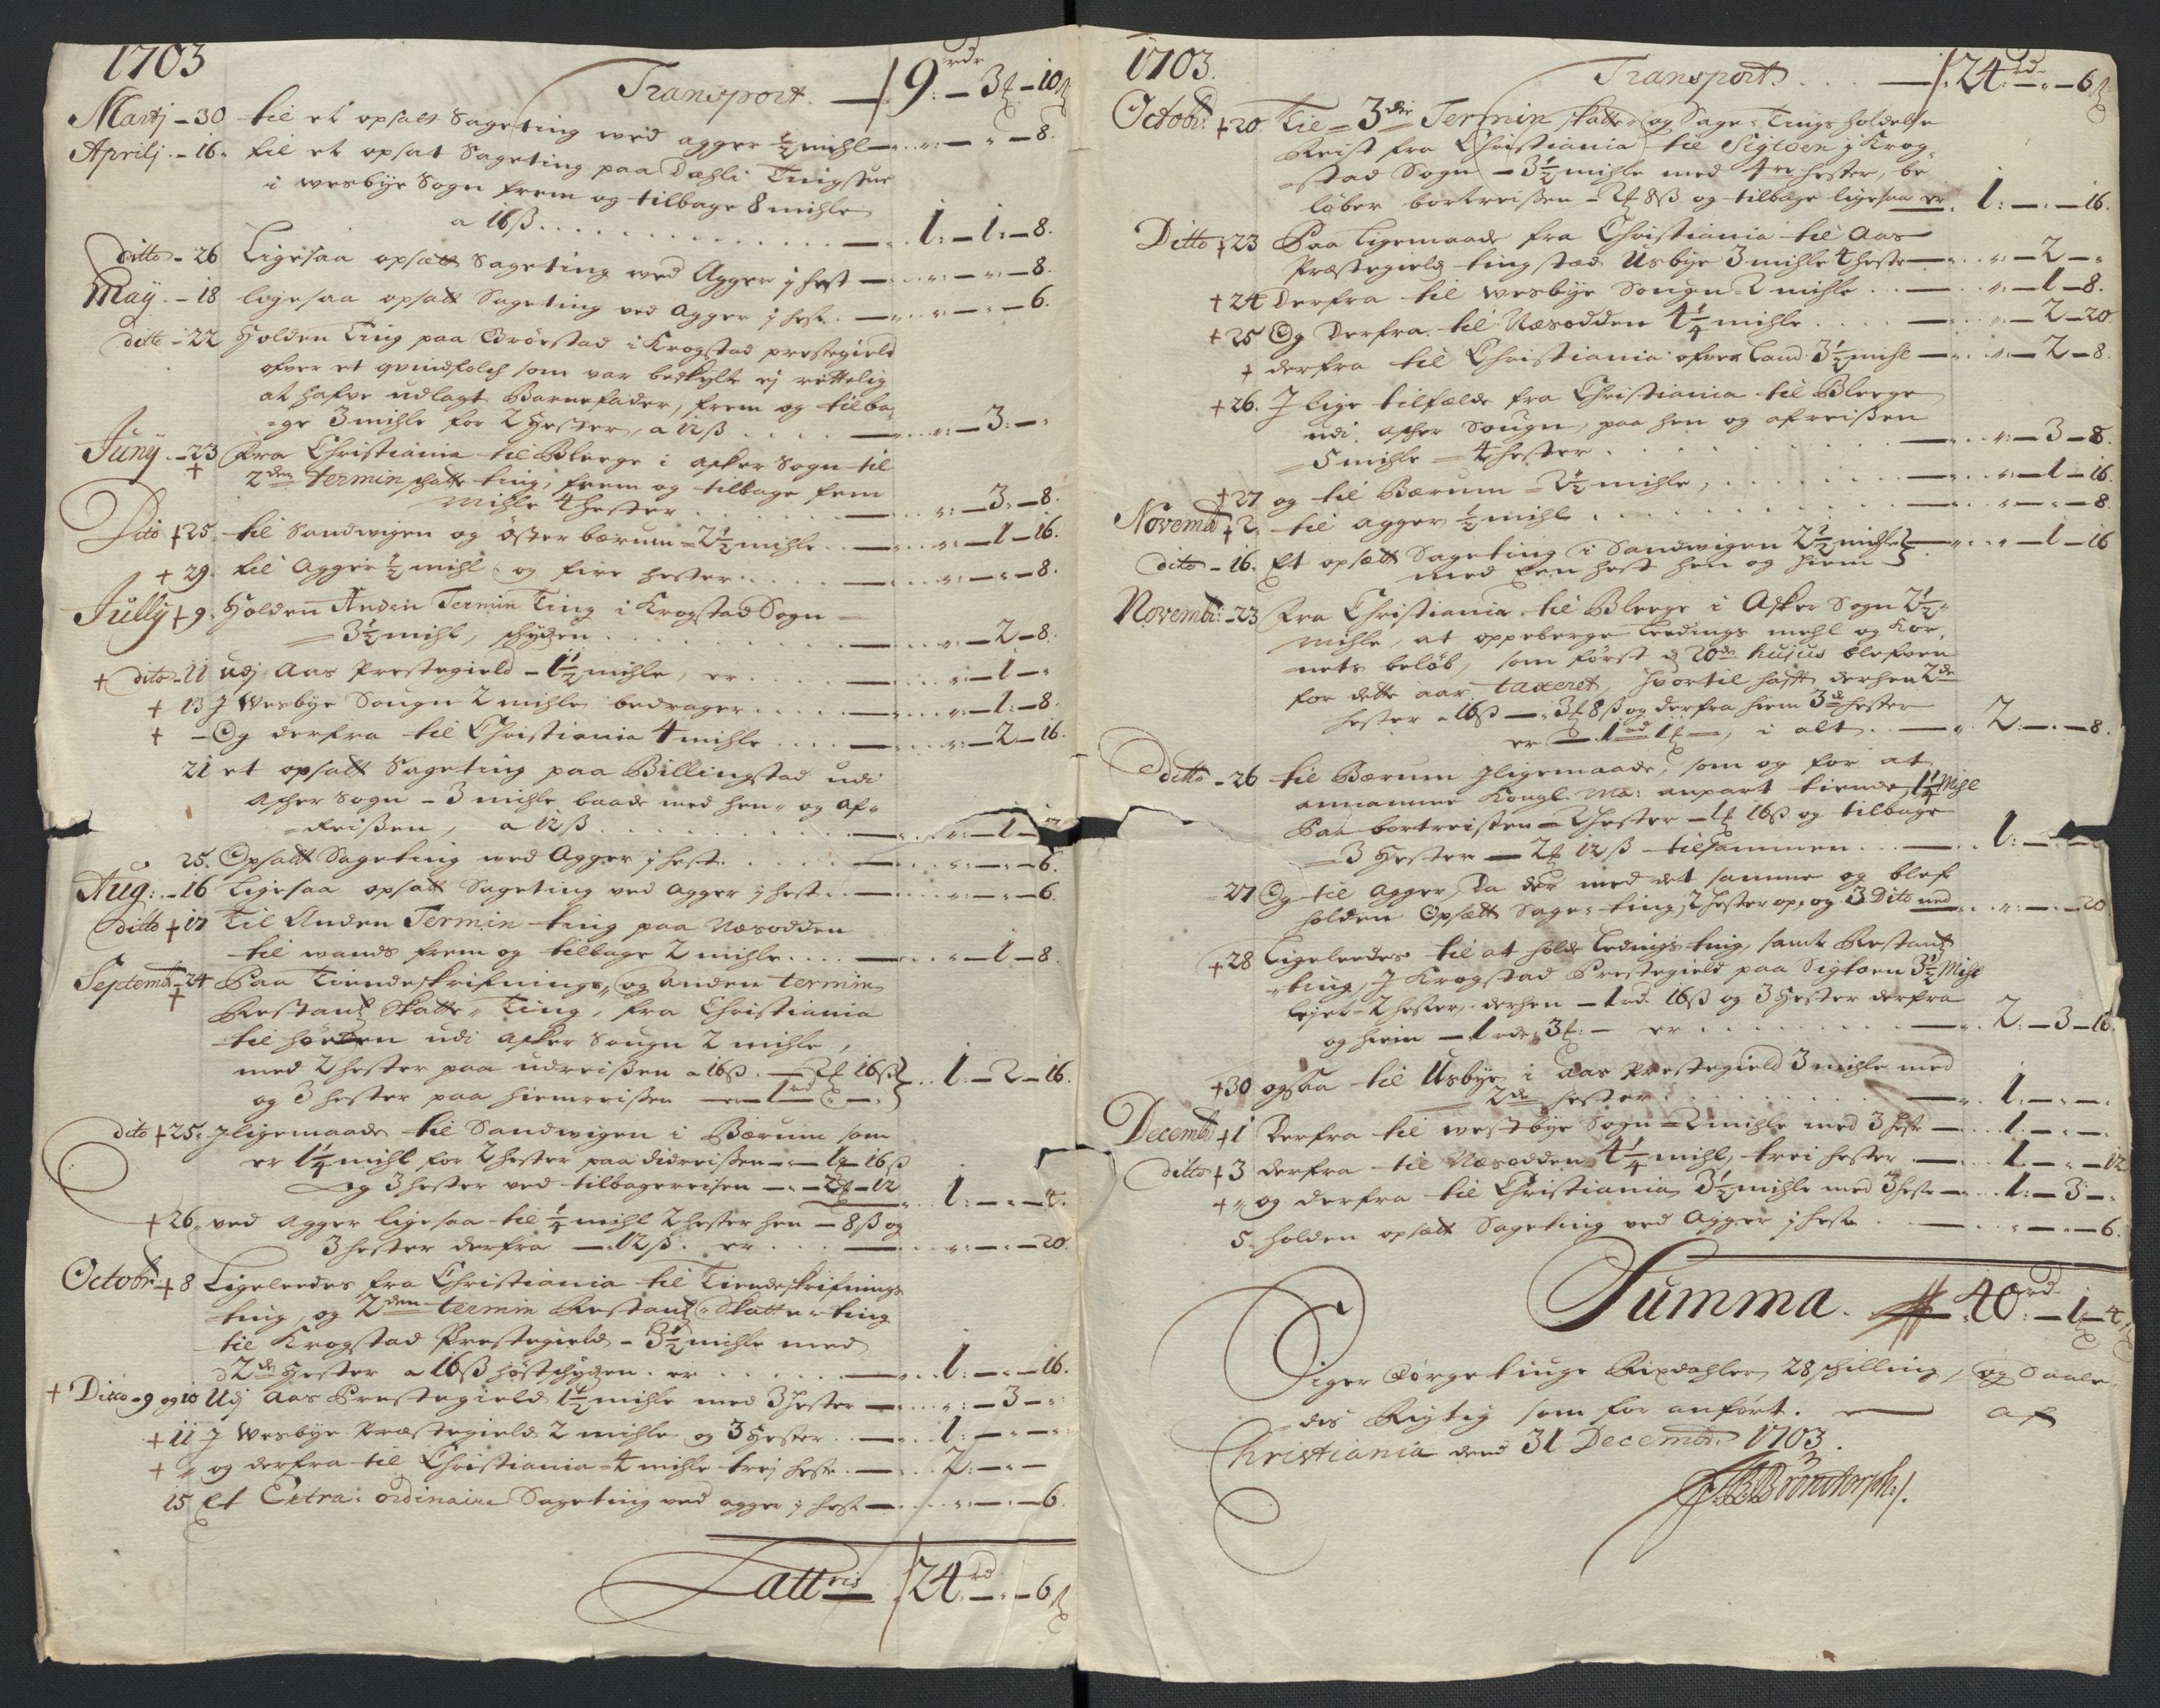 1703
Transport. — 9 rdr — 3 ƶ — 10 ß
Martj – 30 til et opsalt Sageting wed agger ½ mihl — „ — „ — 8.
Aprilj – 16. til et opsat Sageting paa Dæhli Tingstue
i wesbye Sogn frem og tilbage 8 mihle
a 16 ß . . . — 1: — 1: — 8.
ditto – 26 Ligesaa opsætt Sageting wed Agger j hest — „ — „ — 8.
Maÿ. – 18 ligesaa opsatt Sageting ved Agger j hest. — „ — „ — 6.
ditto – 22 Holden Ting paa Brørstad i Krogstad prestegield
ofver et qvindfolch som var beskylt ej rettelig
at hafve udlagt Barnefader, frem og tilba„
„ge 3 mihle for 2 Hester, a 12 ß . . . — „ — 3: — „
Junij – 23 + Fra Christiania til Bleege i asker Sogn til
2den termin skatte ting, frem og tilbage fem
mihle 4 hester . . . — „ — 3 – 8.
Dito + 25. til Sandwigen og öster bærum = 2½ mihle . . — „ — 1 – 16.
+ 29. til Agger ½ mihl og fire hester . . . — „ — „ – 8.
Jullÿ + 9. Holden Anden Termin Ting i Krogstad Sogn —
= 3½ mihl, schÿdzen . . . — „ — 2 – 8.
+ dito – 11 udj Aas Prestegield – 1½ mihle, er . . . — „ — 1 – „
+ 13 J Wesbye Sougn 2 mihle bedrager . . . — „ — 1: – 8.
+ – Og derfra til Christiania 4 mihle . . . — „ — 2 – 16.
21 et opsatt Sageting paa Billingstad udi
Asker Sogn – 3 mihle baade med hen„ og af„
„Reißen, a 12 ß . . . — „ — 1 –
25. Opsatt Sageting wed Agger j hest. . . — „ — „ – 6.
Aug: – 16 Ligesaa opsatt Sageting ved agger j hest . . — „ — „ – 6.
ditto + 17 Til Anden Termin ting paa Næsodden
til wands frem og tilbage 2 mihle . . . — „ — 1 – 8.
Septembr – 24 + Paa Tiendeskrifnings„ og Anden termin
Restantz Skatte„ Ting, fra Christiania
til hörden udi asker Sougn 2 mihle,
med 2 hester paa udreißen a 16 ß. — 2 ƶ 16 ß } . . 1: — 2 – 16.
og 3 hester paa hiemreißen — er — 1 rd „ — „
dito + 25. Jligemaade til Sandwigen i Bærum som
er 1¼ mihl for 2 hester paa didreißen — 1 ƶ – 16 ß
og 3 hester ved tilbagereisen — 2 ƶ – 12 — 1: — „ – 4.
+ 26. ved Agger ligesaa til ¼ mihl 2 hester hen – 8 ß og
3 hester derfra — 12 ß. er . . . — „ — „ – 20.
Octobr + 8 Ligeleedes fra Christiania til Tiendeskrifnings
ting, og 2den termin Restantz „Skatte„ ting
til Krogstad Prestegield – 3½ mihle med
2de Hester a 16 ß höstschÿdzen. er . . . — 1: — „ – 16.
+ Ditto – 9 og 10 Udj Aas Prestegield 1½ mihle med 3 hester — „ — 3 – „
+ 11 J Wesbye Præstegield 2 mihle og 3 Hester . . — 1: — „ — „
+ „ og derfra til Christiania – 4 mihle trej heste. — 2: — „ —
15 Et Extra: ordinaire Sageting ved agger j hest — „ — „ – 6.
Lattris 24 rd — „ — 6 ß
1703.
Transport. . . . — 24 rd. — „ — 6 ß
Octobr: + 20. Til – 3die Termin skatte„ og Sage„ Tings holdelse
Reist fra Christiania til Sigtoen j Krog„
„stad Sogn – 3½ mihle med 4re hester, be„
löber bortreißen – 2 ƶ 8 ß og tilbage ligesaa er. 1: — „ — 16.
Ditto + 23 Paa Ligemaade fra Christiania til Aas
Præstegields tingstæd Usbye 3 mihle 4 heste — „ — 2 — „
+ 24 Derfra til Wesbye Sougn = 2 mihle . . — „ — 1 – 8.
+ 25 Og Derfra til Næsodden 4¼ mihle . . . — „ — 2 – 20
+ derfra til Christiania ofver Land 3½ mihl — „ — 2 – 8.
+ 26. J lige tilfælde fra Christiania til Bleege
udi asker Sougn, paa hen og afreißen
= 5 mihle — 4 hester . . . — „ — 3 – 8.
+ 27 og til Bærum = 2½ mihle, . . . — „ — 1 – 16.
Novembr + 2. til agger ½ mihl . . . — „ — „ – 8.
dito – 16. Et opsatt Sageting i Sandwigen 2½ mihle } — „ — 1 – 16
med een hest hen og hiem
Novembr: – 23 Fra Christiania til Bleege i Asker Sogn 2½„
mihle, at oppeberge Leedings mehl og Kor„
„nets belöb, som först d. 20de hujus blefven
for dette aar taxeret, hvortil hafft derhen 2de
hester a 16 ß — 3 ƶ 8 ß og derfra hiem 3de hester
er — 1 rd 1 ƶ —, i alt . . — 2 — „ — 8.
Ditto – 26 til Bærum jligemaade, som og for at
annamme Kongl. Ma: anpart tiende, 1¼ Mihl
Paa bortreisten – 2 hester – 1 ƶ 16 ß og tilbage
= 3 Hester — 2 ƶ 12 ß tilsammen . . — 1: — „
27 Og til Agger, Da der med det samme og blef
holden Opsatt Sage„ ting, 2 hester op, og 3 Dito ned — „ — „ – 20
+ 28 Ligeleedes til at holde Ledings ting, samt Restantz
„ting, J Krogstad Prestegield paa Sigtoen 3½ Mihl
lejet – 2 hester, derhen — 1 rd. 16 ß og 3 Hester derfra
og hiem — 1 rdr 3 ƶ: — er . . . — 2: — 3 – 16.
+ 30 ogsaa til Usbye i Aas Prestegield 3 mihle med
2de hester . . . — 1: — „ — „
Decembr + 1 Derfra til westbye Sogn = 2 mihle med 3 heste — 1: — „ — „
ditto + 3 derfra til Næsodden 4¼ mihl, trei hester — 1 — „ – 12
+ „ og derfra til Christiania 3½ mihle med 3 heste — 1: — 3 — „
5. holden opsatt Sageting ved Agger j hest . — „ — „ – 6.
Summa. — 40 rd. — 1 – 4 ß
Siger Förgetiuge Rixdahler 28 schilling, og Saale„
des Rigtig som for anfört. — af
Christiania dend 31 Decembr: 1703.